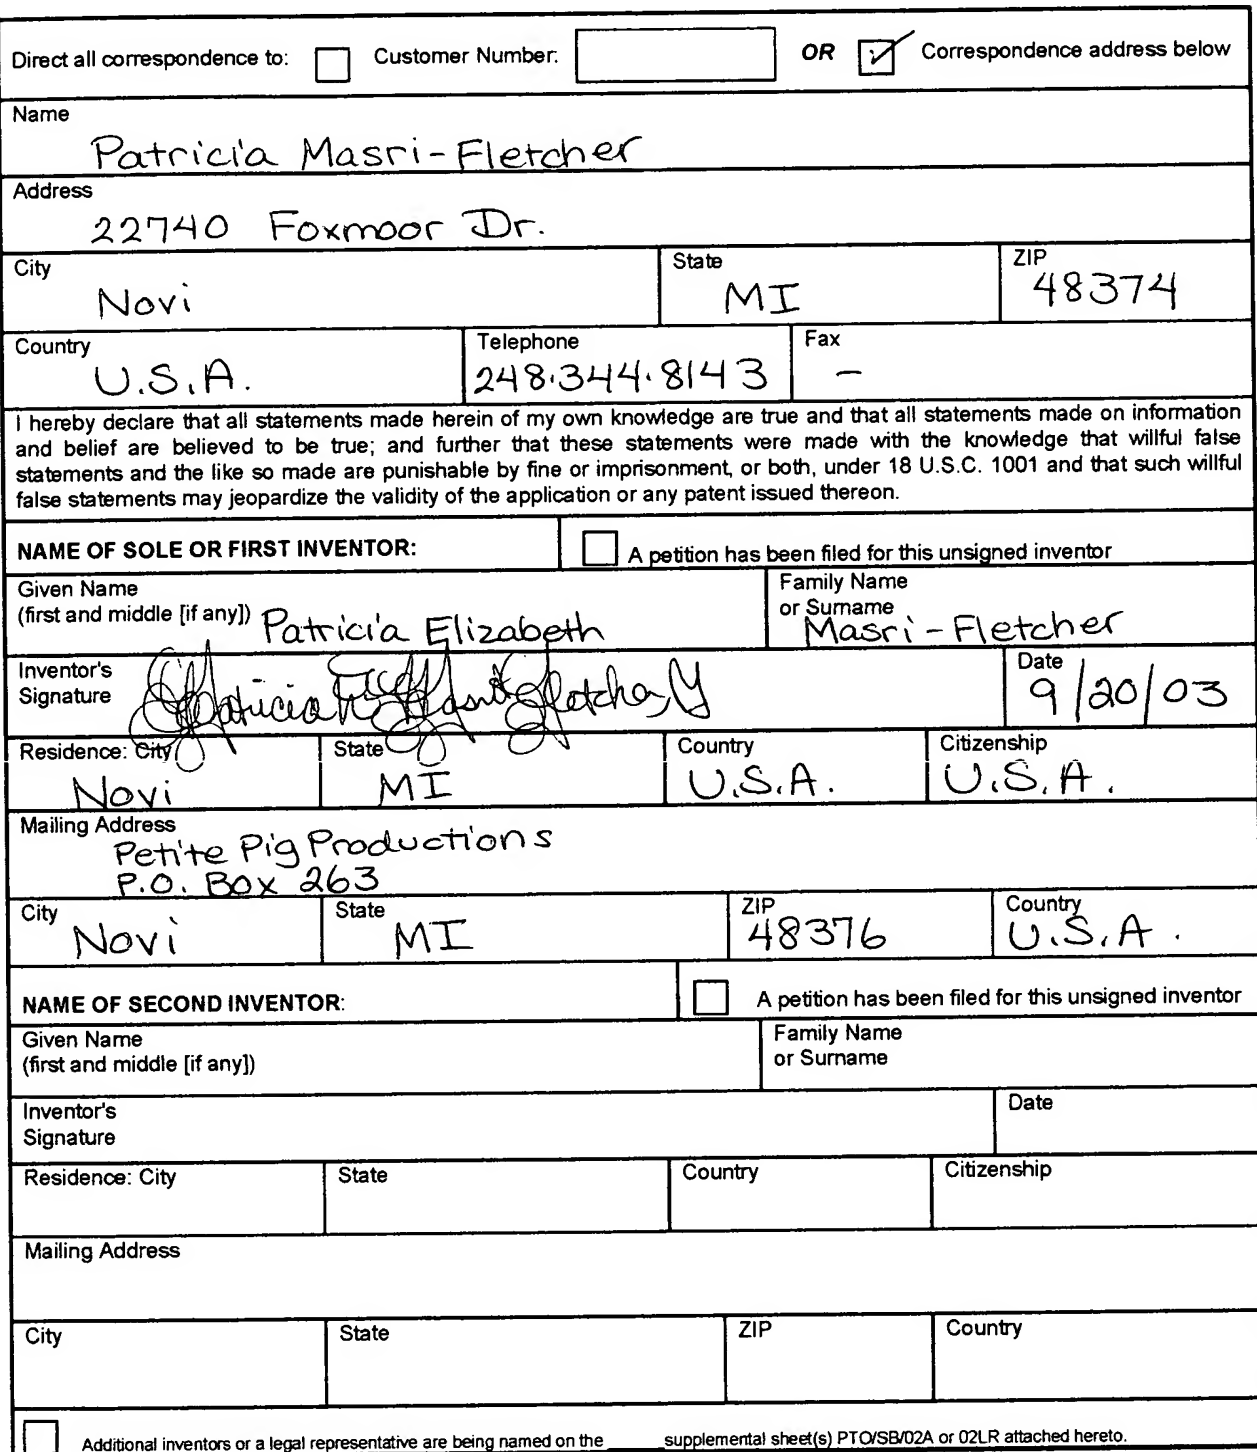 Direct all correspondence to: Customer Number: OR Correspondence address below
Name
Patricia Masri-Fletcher
Address
22740 Foxmoor Dr.
City State ZIP
Novi MI 48374
Country Telephone Fax
U.S.A. 248.344.8143 -
I hereby declare that all statements made herein of my own knowledge are true and that all statements made on information
and belief are believed to be true; and further that these statements were made with the knowledge that willful false
statements and the like so made are punishable by fine or imprisonment, or both, under 18 U.S.C. 1001 and that such willful
false statements may jeopardize the validity of the application or any patent issued thereon.
NAME OF SOLE OR FIRST INVENTOR: A petition has been filed for this unsigned inventor
Given Name Family Name
(first and middle [if any]) Patricia Elizabeth or Surname Masri-Fletcher
Inventor's Date
Signature 9/20/03
Residence: City State Country Citizenship
Novi MI U.S.A. U.S.A.
Mailing Address
Petite Pig Productions
P.O. Box 263
City State ZIP Country
Novi MI 48376 U.S.A.
NAME OF SECOND INVENTOR: A petition has been filed for this unsigned inventor
Given Name Family Name
(first and middle [if any]) or Surname
Inventor's Date
Signature
Residence: City State Country Citizenship
Mailing Address
City State ZIP Country
Additional inventors or a legal representative are being named on the ______ supplemental sheet(s) PTO/SB/02A or 02LR attached hereto.